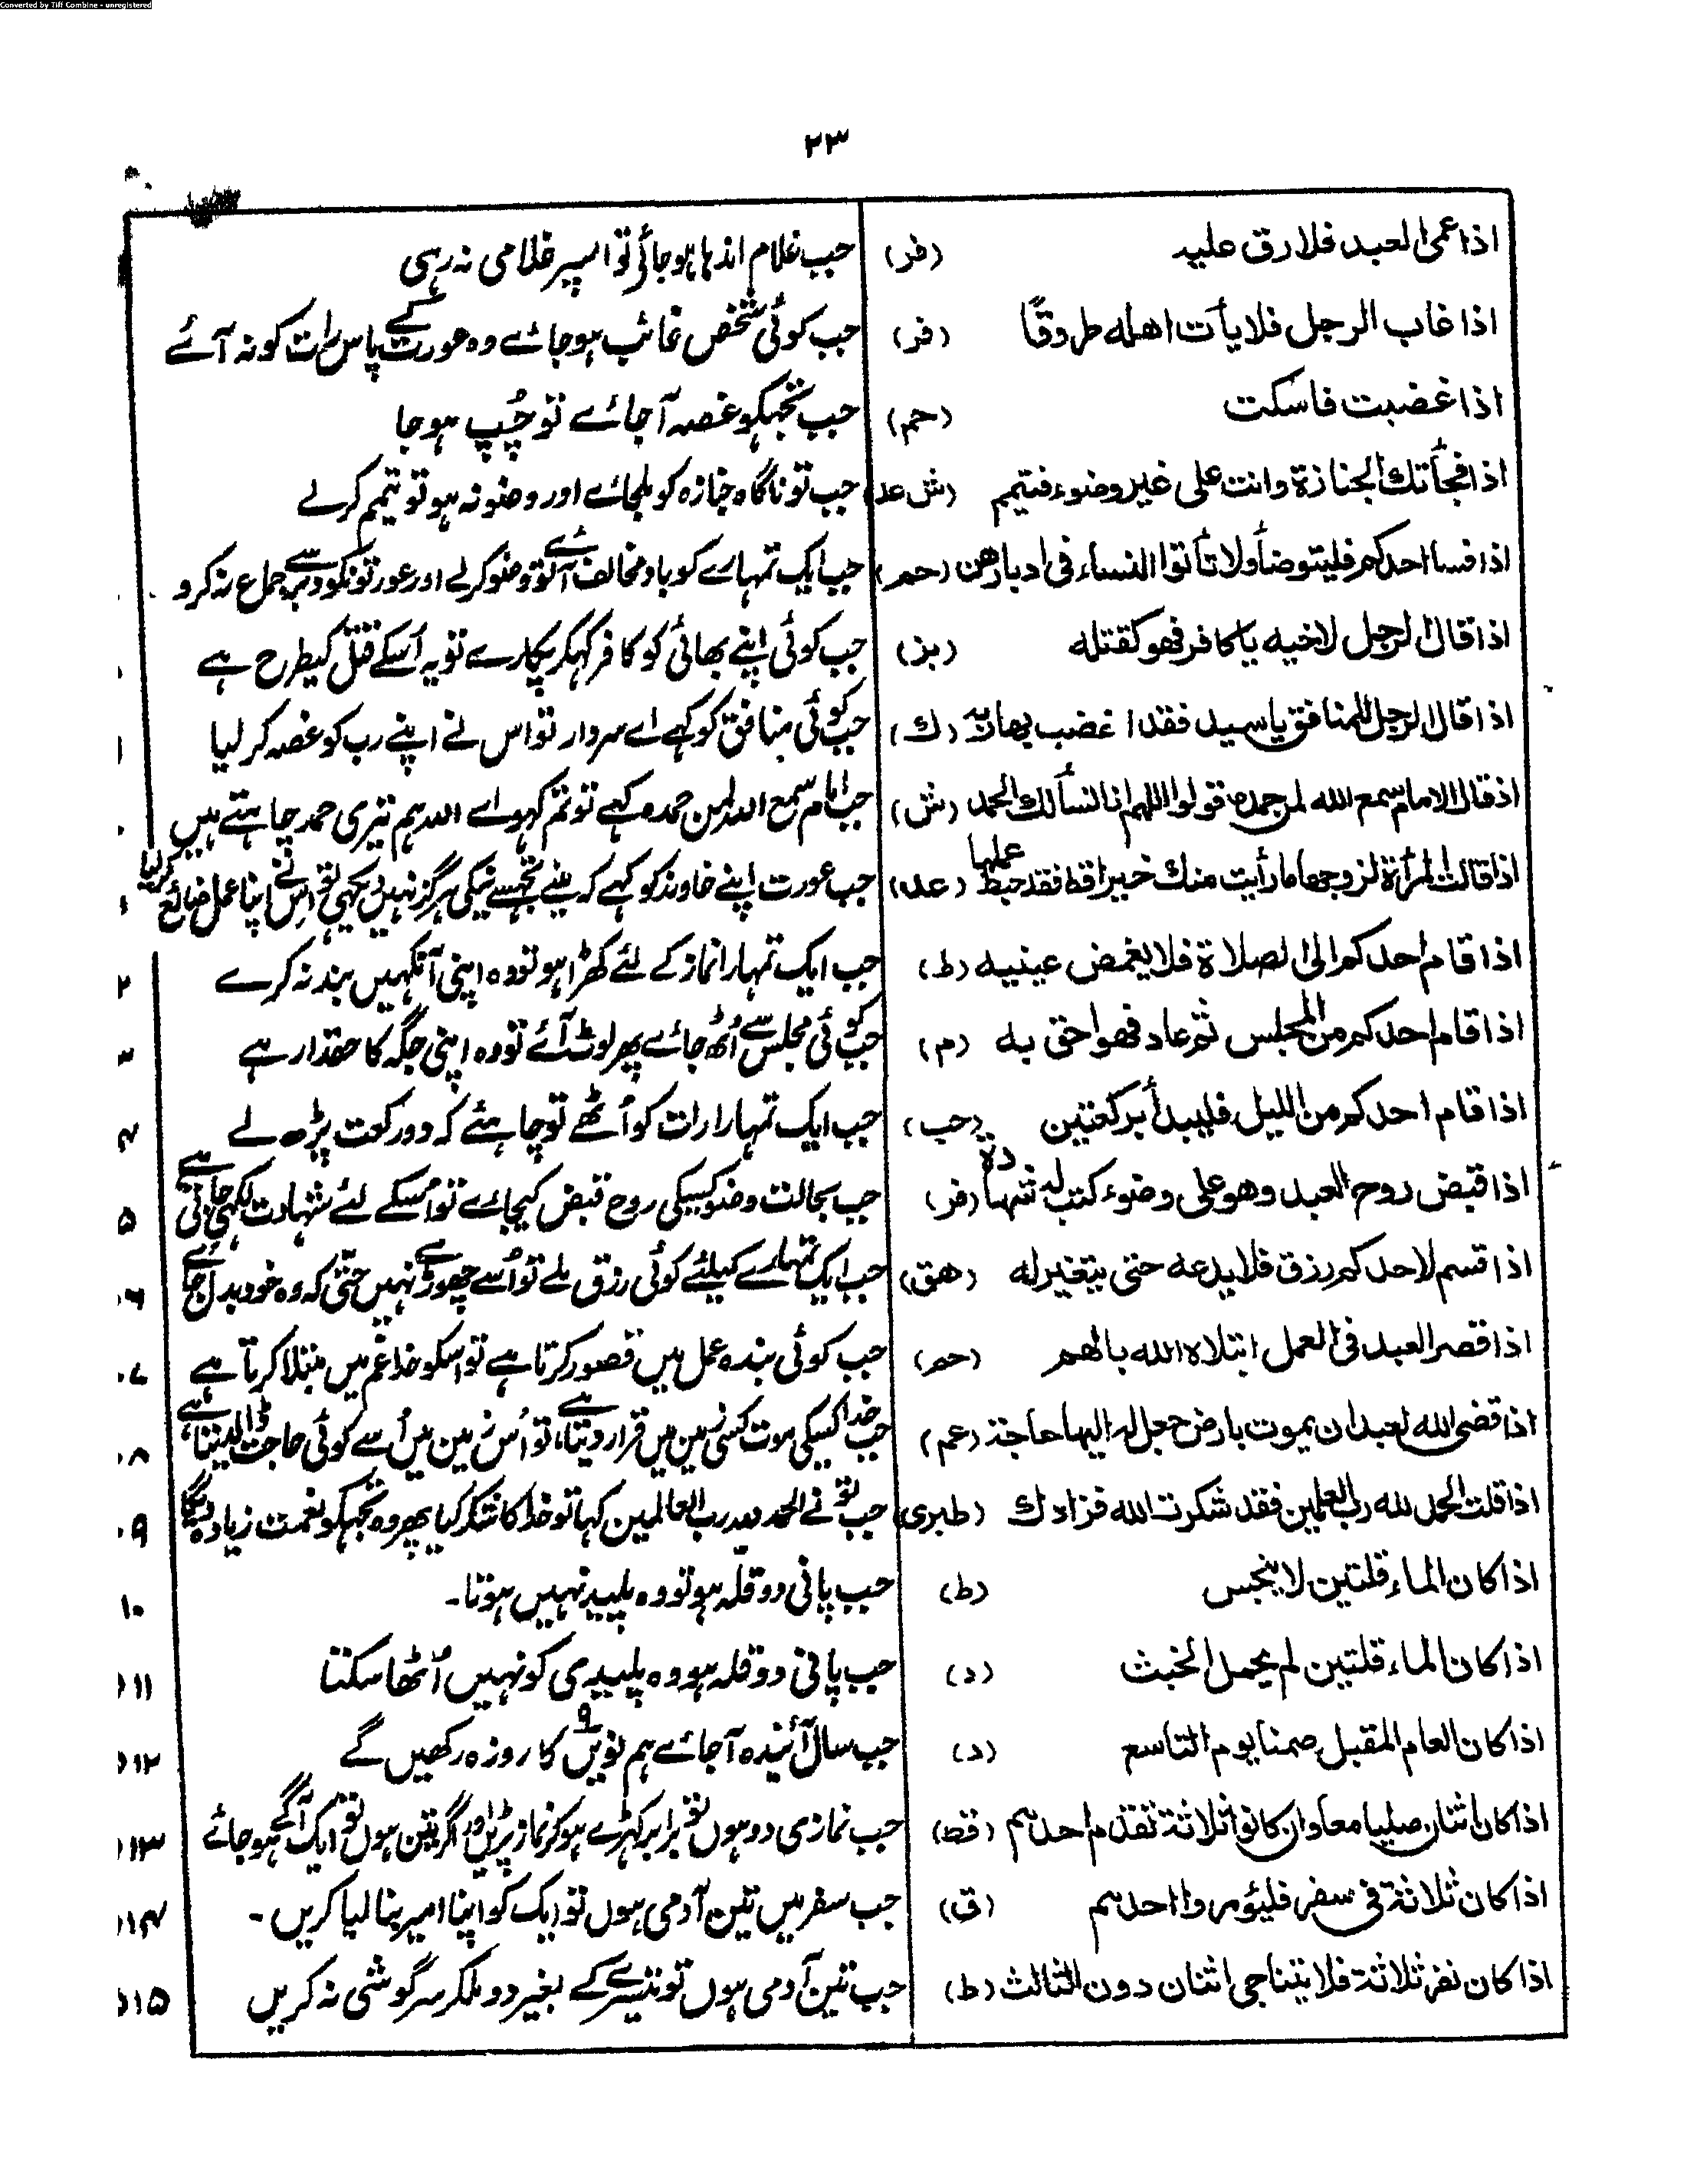 Converted by Tiff Combine - unregistered
٢٣
اذا عمى العبد فلا رق عليه (فر) جب غلام اندہا ہو جائے تو اسپر غلامی نہ رہی
اذا غاب الرجل فلا يأت اهله طروقًا (فر) جب کوئی شخص غائب ہو جائے وہ عورت کے پاس رات کو نہ آئے
اذا غضبت فاسكت (حم) جب تجہکو غصہ آ جائے تو چُپ ہو جا
اذا فجأتك الجنازة وانت على غير وضوء فتيمم (ش عد) جب تو ناگاہ جنازہ کو پا جائے اور وضو نہ ہو تو تیمم کر لے
اذا فسا احدكم فليتوضأ ولا تأتوا النساء فى ادبارهن (حم) جب ایک تمہارے کو باد مخالف آئے تو وضو کر لے اور عورتونکو دبر سے جماع نہ کرو
اذا قال الرجل لاخيه يا كافر فهو كقتله (بز) جب کوئی اپنے بھائی کو کافر کہکر پکارے تو یہ اُسکے قتل کیطرح ہے
اذا قال الرجل للمنافق يا سيد فقد اغضب ربه (ك) جب کوئی منافق کو کہے اے سردار تو اس نے اپنے رب کو غصہ کر لیا
اذ قال الامام سمع الله لمن حمده قولوا اللهم انا نسألك الحمد (ش) جب امام سمع اللہ لمن حمدہ کہے تو تم کہو اے اللہ ہم تیری حمد چاہتے ہیں
اذا قالت المرأة لزوجها ما رأيت منك خيرا قط فقد حبط عملها (عد) جب عورت اپنے خاوند کو کہے کہ مینے تجہسے نیکی ہرگز نہیں دیکہی تو اس نے اپنا عمل ضائع کر لیا
اذا قام احدكم الى الصلاة فلا يغمض عينيه (ط) جب ایک تمہارا نماز کے لئے کھڑا ہو تو وہ اپنی آنکہیں بند نہ کرے ٢
اذا قام احدكم من المجلس ثم عاد فهو احق به (م) جب کوئی مجلس سے اُٹھ جائے پھر لوٹ آئے تو وہ اپنی جگہ کا حقدار ہے ٣
اذا قام احدكم من الليل فليبدأ بركعتين (حب) جب ایک تمہارا رات کو اُٹھے تو چاہئے کہ دو رکعت پڑھ لے ۴
اذا قبض روح العبد وهو على وضوء كتب له شهادة (فر) جب بحالت وضو کسیکی روح قبض کیجائے تو اُسکے لئے شہادت لکہی جاتی ہے ۵
اذا قسم لاحدكم رزق فلا يدعه حتى يتغير له (هق) جب ایک تمہارے کیلئے کوئی رزق ملے تو اُسے چھوڑے نہیں حتّٰی کہ وہ خود بدل جائے ۶
اذا قصر العبد فى العمل ابتلاه الله بالهم (حم) جب کوئی بندہ عمل میں قصور کرتا ہے تو اسکو خدا غم میں مبتلا کرتا ہے ۷
اذا قضى الله لعبد ان يموت بارض جعل له اليها حاجة (عم) جب خدا کسیکی موت کسی زمین میں قرار دیتا ہے، تو اُس زمین میں اُسے کوئی حاجت ڈالدیتا ہے ۸
اذا قلت الحمد لله رب العلمين فقد شكرت الله فزادك (طبرى) جب تو نے الحمد للہ رب العالمین کہا تو خدا کا شکر کیا پھر وہ تجہکو نعمت زیادہ دیگا ۹
اذا كان الماء قلتين لا ينجس (ط) جب پانی دو قلّہ ہو تو وہ پلید نہیں ہوتا۔ ۱۰
اذا كان الماء قلتين لم يحمل الخبث (د) جب پانی دو قلہ ہو وہ پلیدی کو نہیں اُٹھا سکتا ۱۱
اذا كان العام المقبل صمنا يوم التاسع (د) جب سال آئندہ آ جائے ہم نویں ۹ کا روزہ رکھیں گے ۱۲
اذا كان اثنان صليا معا وان كانوا ثلاثة تقدم احدهم (قط) جب نمازی دو ہوں تو برابر کہڑے ہو کر نماز پڑہیں اور اگر تین ہوں تو ایک آگے ہو جائے ۱۳
اذا كان ثلاثة فى سفر فليؤمروا احدهم (ق) جب سفر میں تین آدمی ہوں تو ایک کو اپنا امیر بنا لیا کریں - ۱۴
اذا كان نفر ثلاثة فلا يتناجى اثنان دون الثالث (ط) جب تین آدمی ہوں تو تیسرے کے بغیر دو ملکر سرگوشی نہ کریں ۱۵